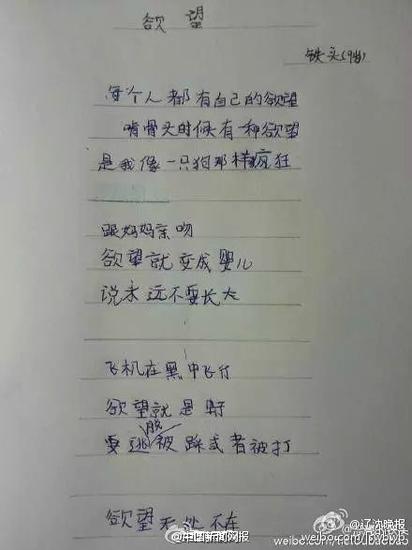 欲望
铁头(9岁)
每个人都有自己的欲望
啃骨头时候有一种欲望
是我像一只狗那样疯狂
跟妈妈亲吻
欲望就变成婴儿
说永远不要长大
飞机在黑中飞行
欲望就是
要逃脱被踩或者被打
欲望无处不在
@中国新闻网
@辽沈晚报